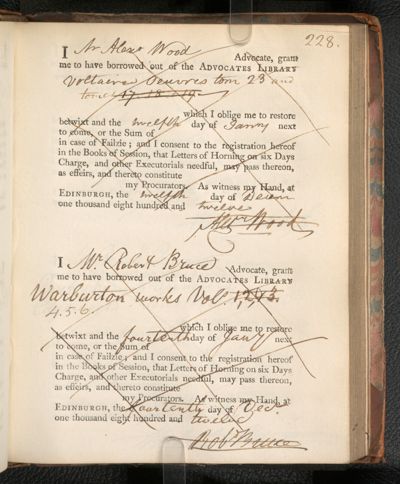 228.
I Mr Alexr Wood Advocate, grant
me to have borrowed out of the ADVOCATES LIBRARY
Voltaires Oeuvres tom 23 and
tom 17. 18 19.
which I oblige me to restore
betwixt and the twelfth day of Janry next
to come, or the Sum of
in case of Failzie; and I consent to the registration hereof
in the Books of Session, that Letters of Horning on six Days
Charge, and other Executorials needful, may pass thereon,
as effeirs, and thereto constitute
my Procurators. As witness my Hand, at
EDINBURGH, the twelfth day of Decem
one thousand eight hundred and twelve
Alexr Wood
I Mr. Robert Bruce Advocate, grant
me to have borrowed out of the ADVOCATES LIBRARY
Warburton works Voll. 1, 2, 3.
4. 5. 6.
which I oblige me to restore
betwixt and the fourteenth day of Jany next
to come, or the Sum of
in case of Failzie; and I consent to the registration hereof
in the Books of Session, that Letters of Horning on six Days
Charge, and other Executorials needful, may pass thereon,
as effeirs, and thereto constitute
my Procurators. As witness my Hand, at
EDINBURGH, the fourteenth day of Decr
one thousand eight hundred and twelve
Robt Bruce